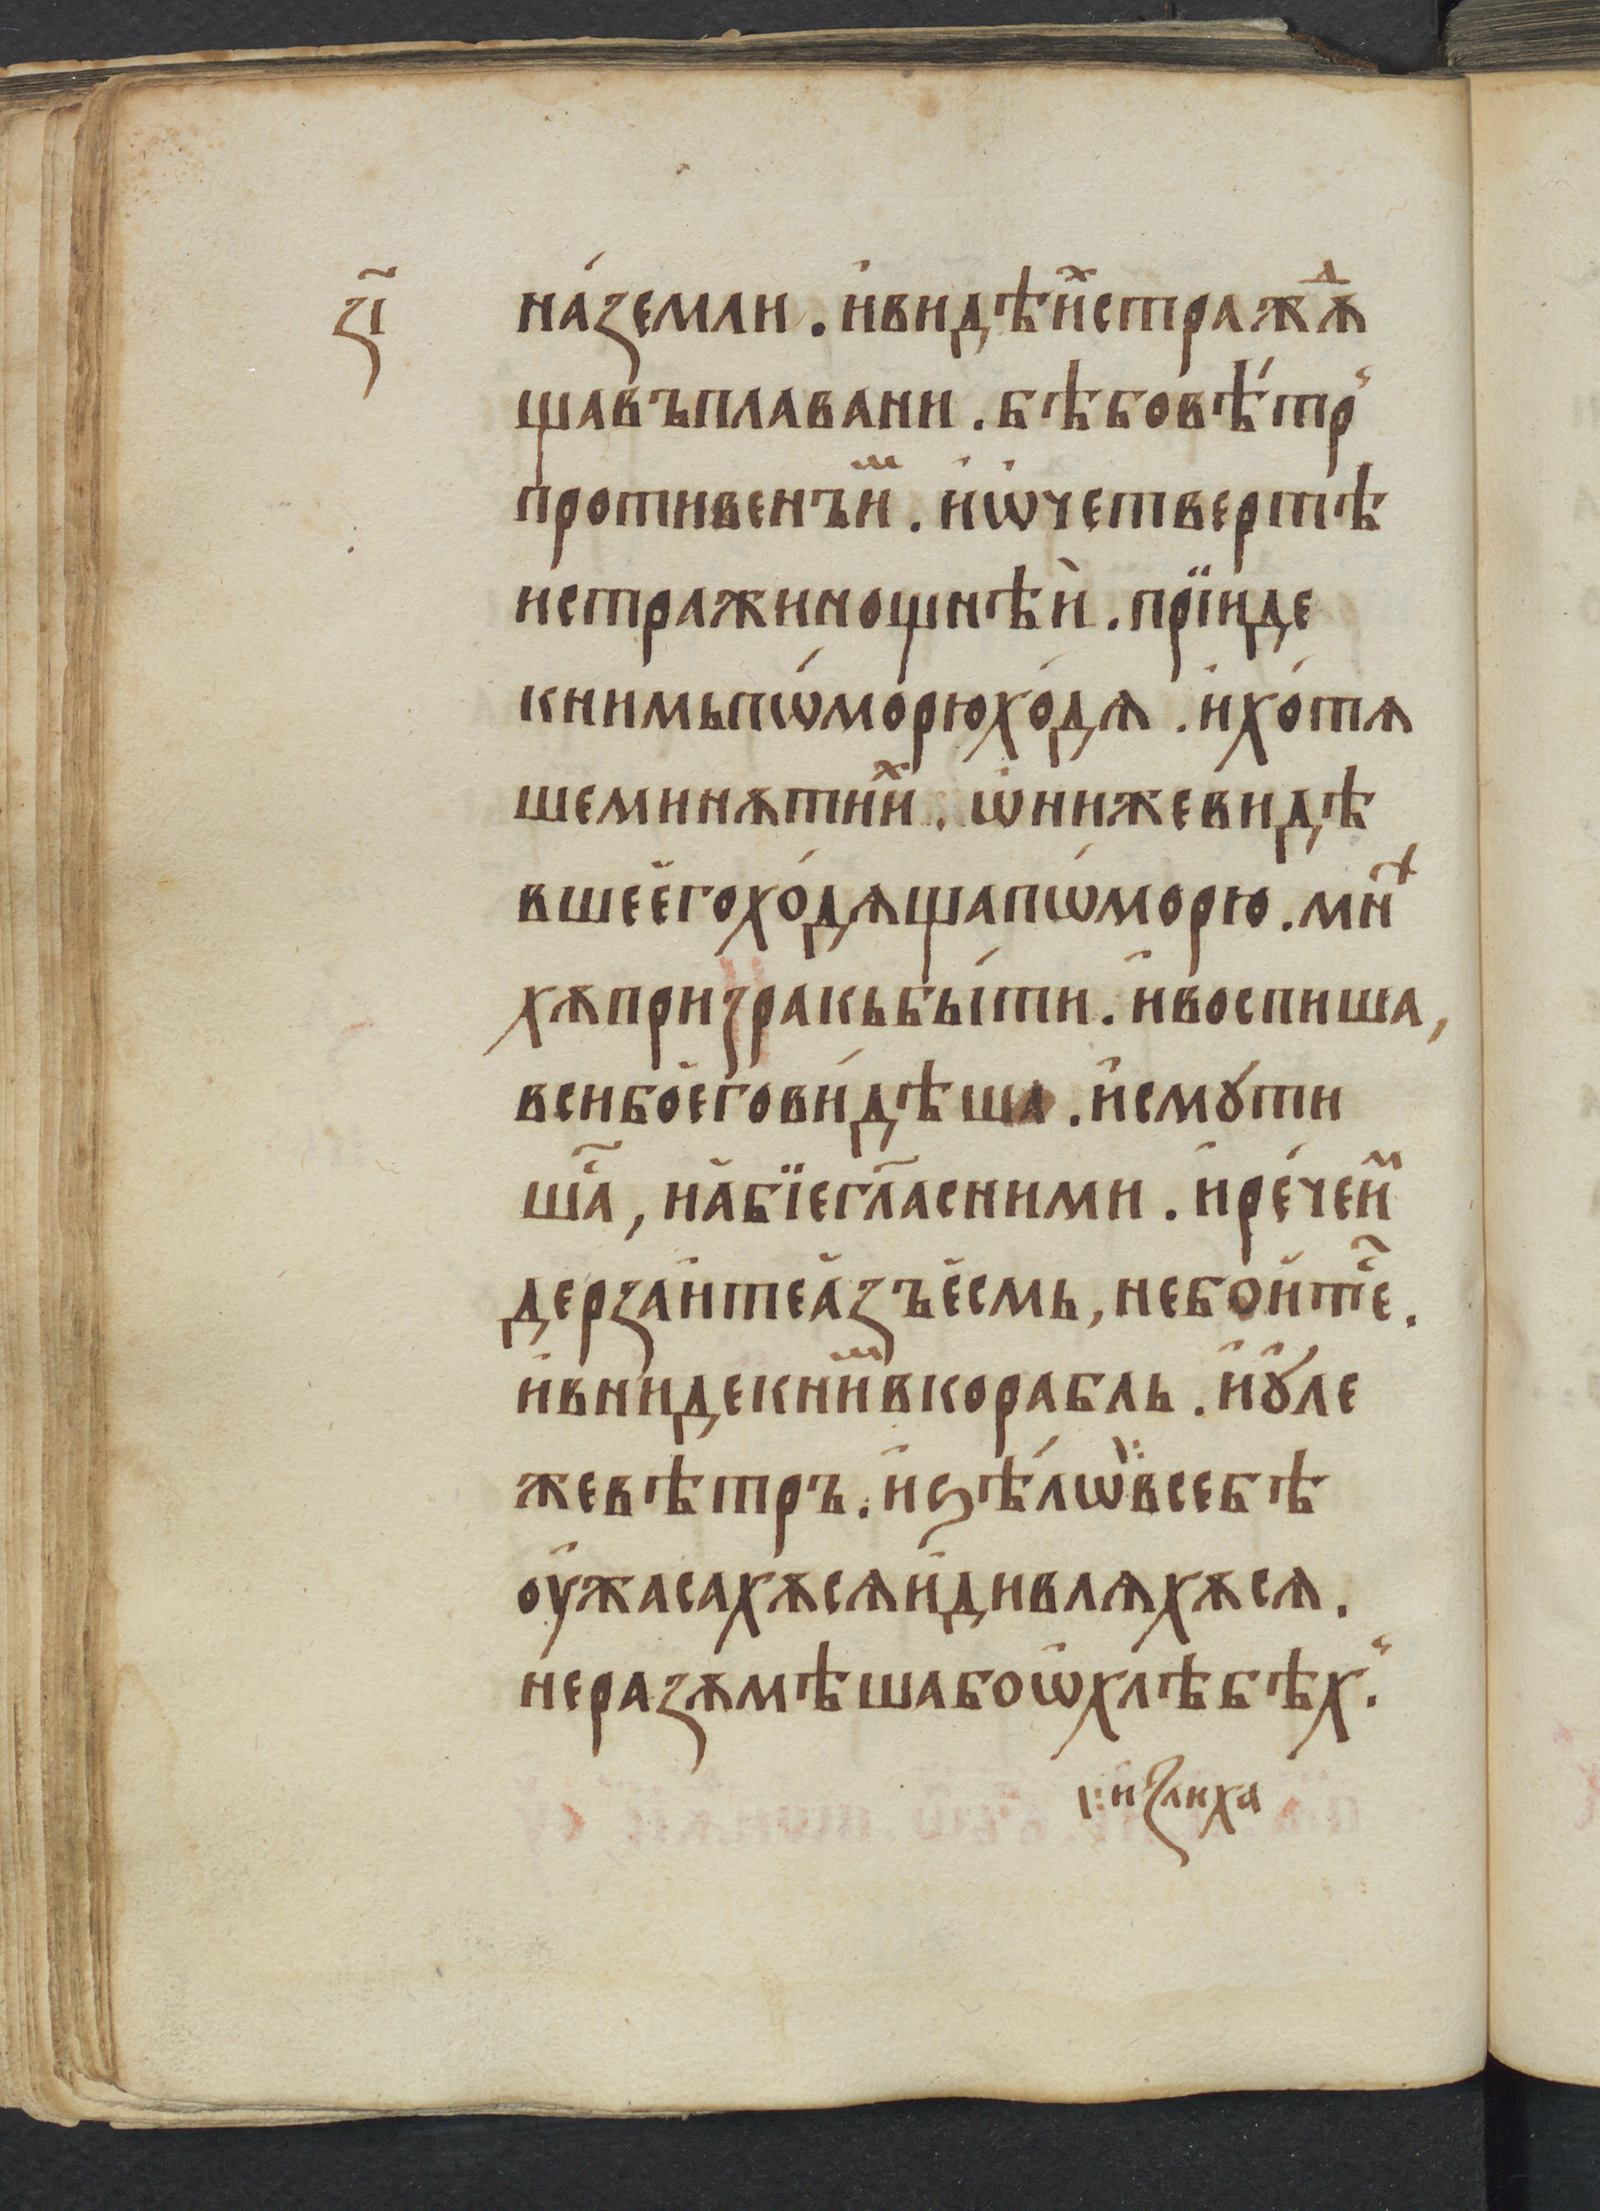 з҃і
на́земли . и҆видѣи҆ⷯстражѫⷣ
щавъплавани . бѣбовѣ́тр̾
противенъи҆ⷨ . и҆ѡ҆четвертѣ
истражинощнѣѝ . прїиде
книмьпѡ́мо́рюхо́дѧ . и҆хо́тѧ
шеминѫтии҆ⷯ . ѡ҆нижевидѣ
вшее҆гохо́дѧщапѡ́морю . мнⷤ
хѫпризракьбы́ти . и҆воспиша,
всибое҆гови́дѣша . и҆смꙋти
шаⷭ҇, на҆бїегл҃аснимиⷨ . и҆ре́чеи҆ⷨ
дерза́итеа҆зъе҆смь, небоитеⷭ҇ .
и҆вни́декни҆ⷨвкорабль . и҆ꙋ҆ле
жевѣтръ . и҆ѕѣ́лѡ⁝всебѣ
оу҆жасахѫсѧи҆дивлѧхѫсѧ .
неразѫмѣшабоѡ҆хлѣбѣх̾ .
⁝и҆злиха